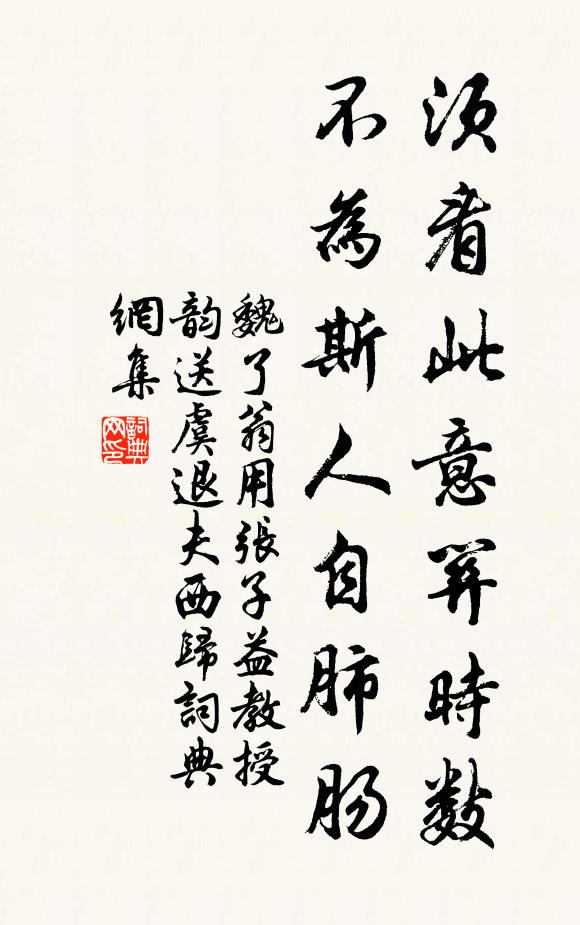 須看此意關時數
不為斯人自肺肠
魏了翁用張子益教授
韵送虞退夫西歸詞典
網集
詞典
网印